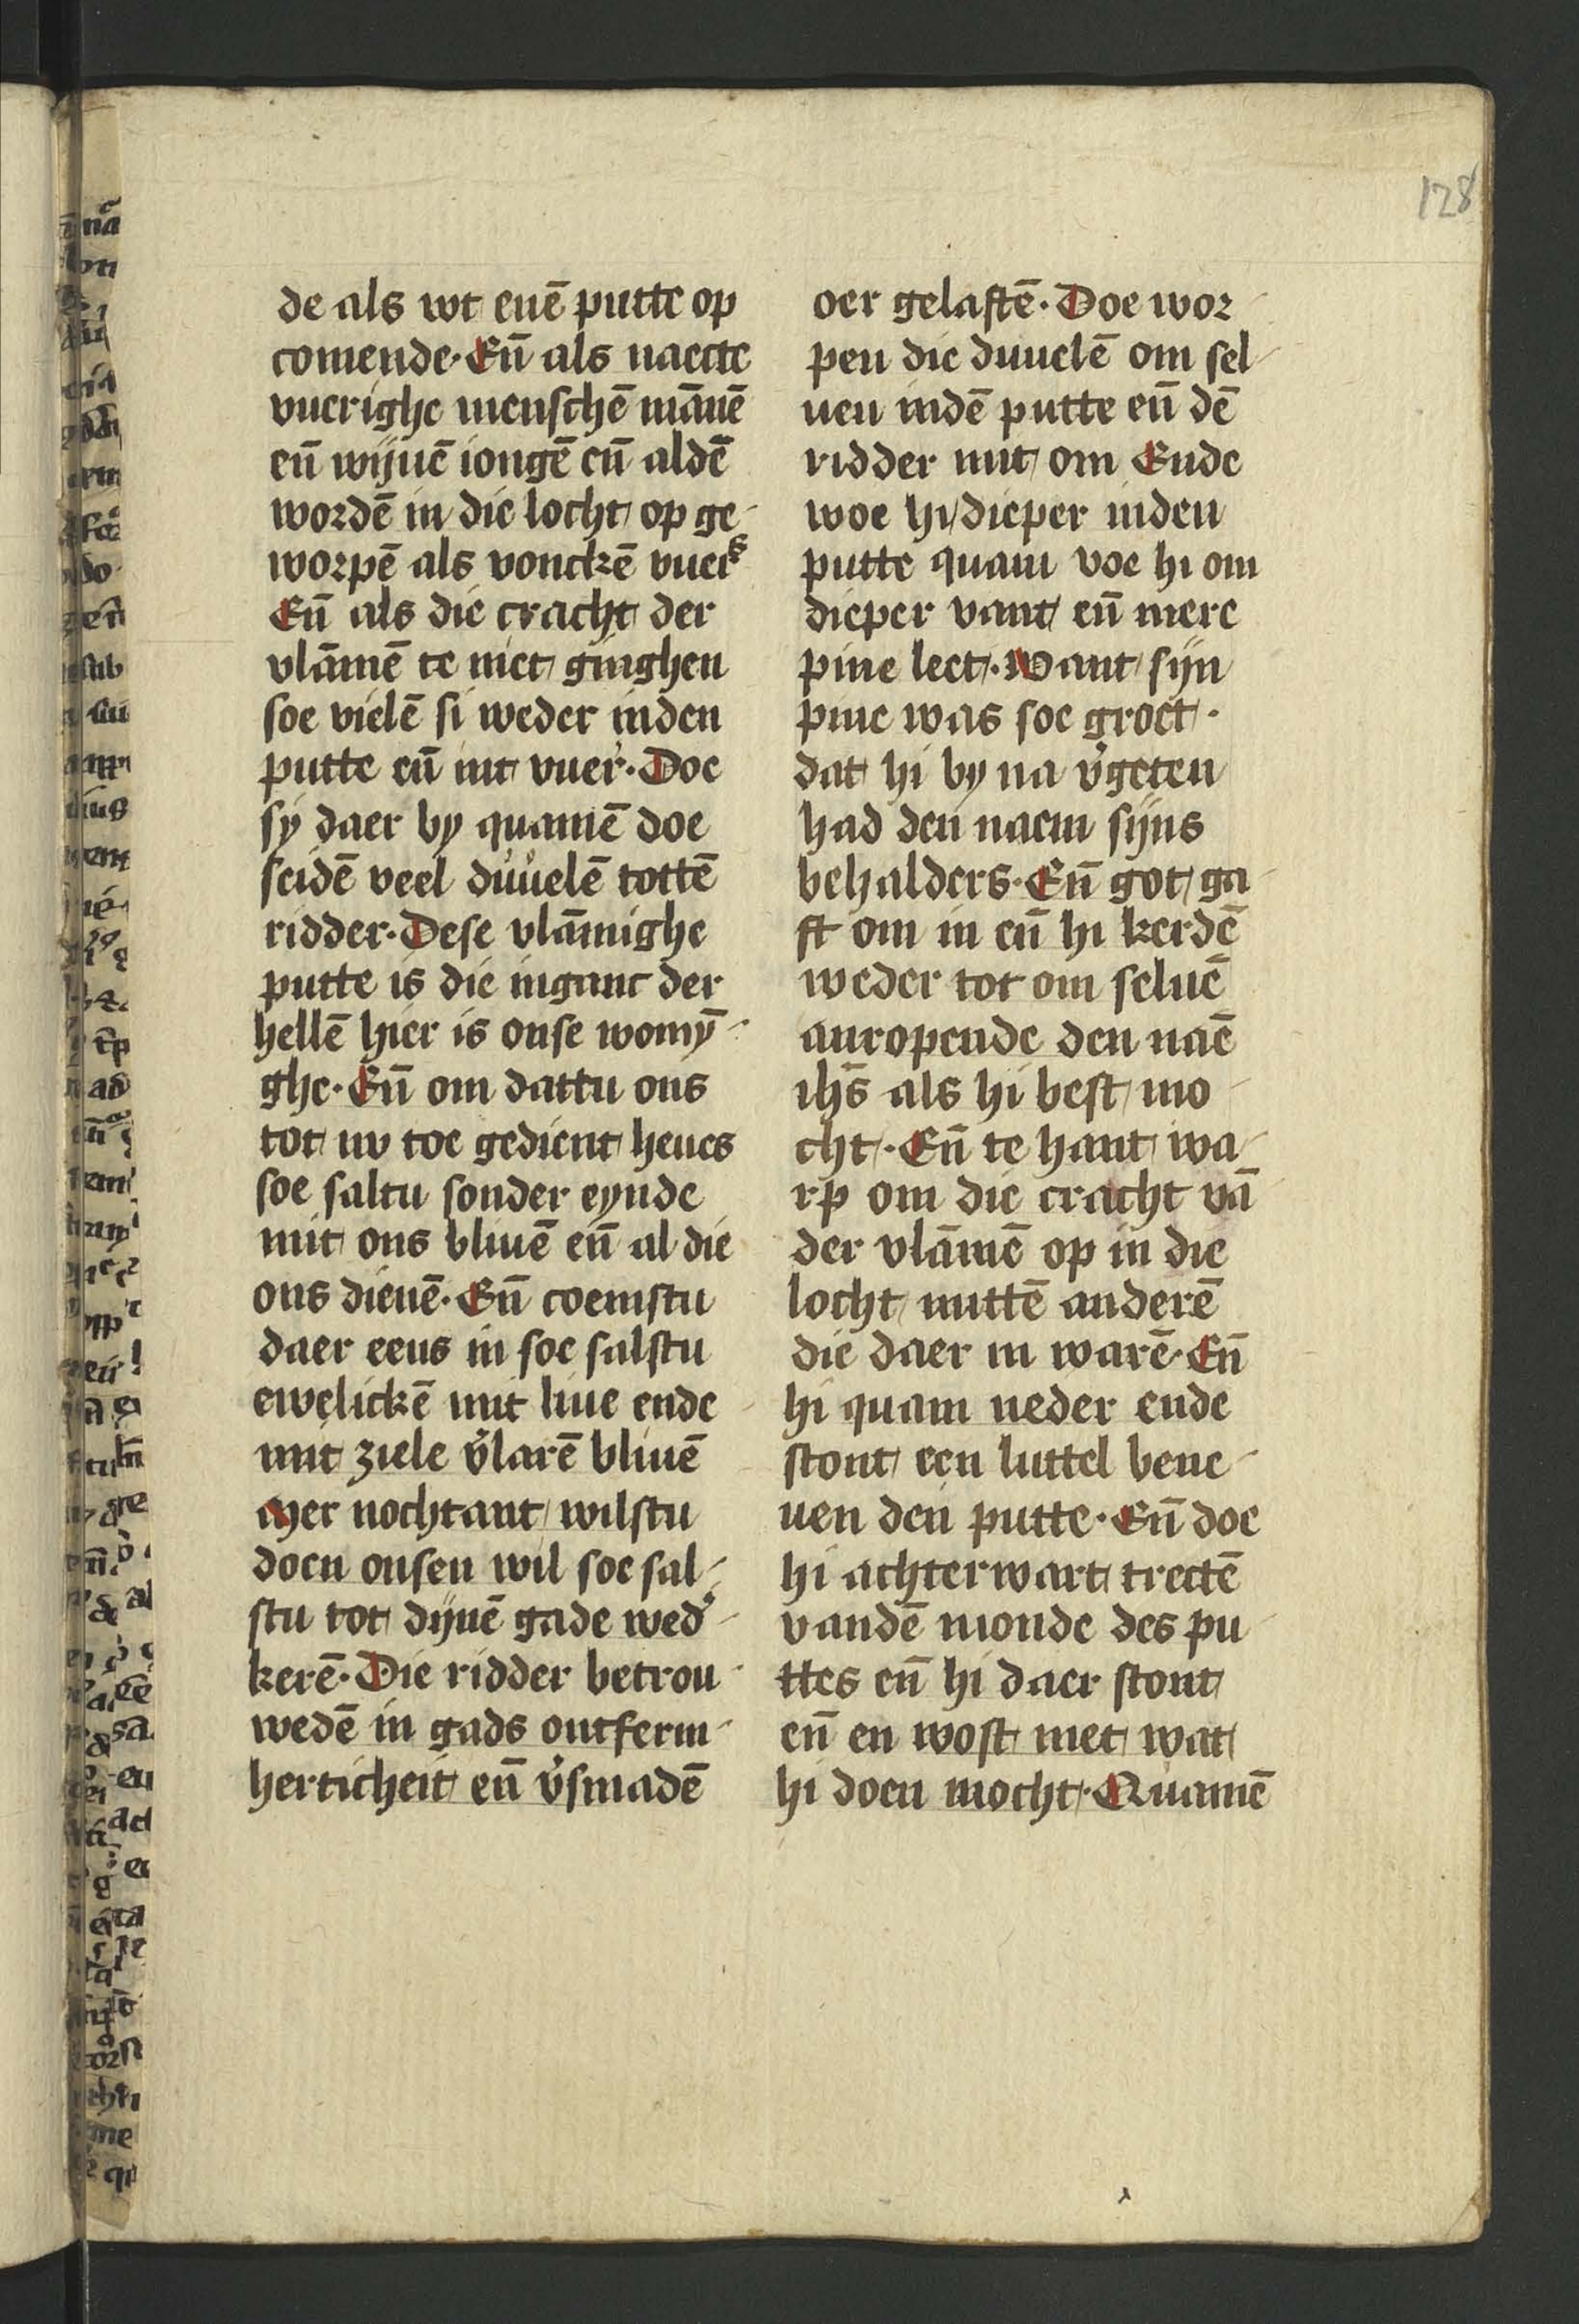 128
de als wt enē putte op
comende· En̄ als naecte
vuerighe menschē mānē
en̄ wijuē iongē en̄ aldē
wordē in die locht op ge-
worpē als vonckē vuers
En̄ als die cracht der
vlāmē te niet ginghen
soe vielē si weder inden
putte en̄ int vuer· Doe
sy daer by quamē doe
seidē veel duuelē tottē
ridder· Dese vlāmighe
putte is die inganc der
hellē hier is onse womȳ-
ghe· En̄ om dattu ons
tot nv toe gedient heues
soe saltu sonder eynde
mit ons bliuē en̄ al die
ons dienē· En̄ coemstu
daer eens in soe salstu
ewelickē mit liue ende
mit ziele v̓larē bliuē
Mer nochtant wilstu
doen onsen wil soe sal-
stu tot dijnē gade wed̓-
kerē· Die ridder betrou-
wedē in gads ontferm-
herticheit en̄ v̓smadē
oer gelaftē· Doe wor-
pen die duuelē om sel-
uen indē putte en̄ dē
ridder mit om Ende
woe hi dieper inden
putte quam voe hi om
dieper vant en̄ mere
pine leet· Want sijn
pine was soe groet·
dat hi by na v̓geten
had den naem sijns
behalders· En̄ got ga-
ft om in en̄ hi kerdē
weder tot om seluē
anropende den naē
ih̄s als hi best mo-
cht· En̄ te hant wa-
rp om die cracht vā
der vlāmē op in die
locht mittē anderē
die daer in warē· En̄
hi quam neder ende
stont een luttel bene-
uen den putte· En̄ doe
hi achterwart trectē
vandē monde des pu-
ttes en̄ hi daer stont
en̄ en wost niet wat
hi doen mocht· Quamē